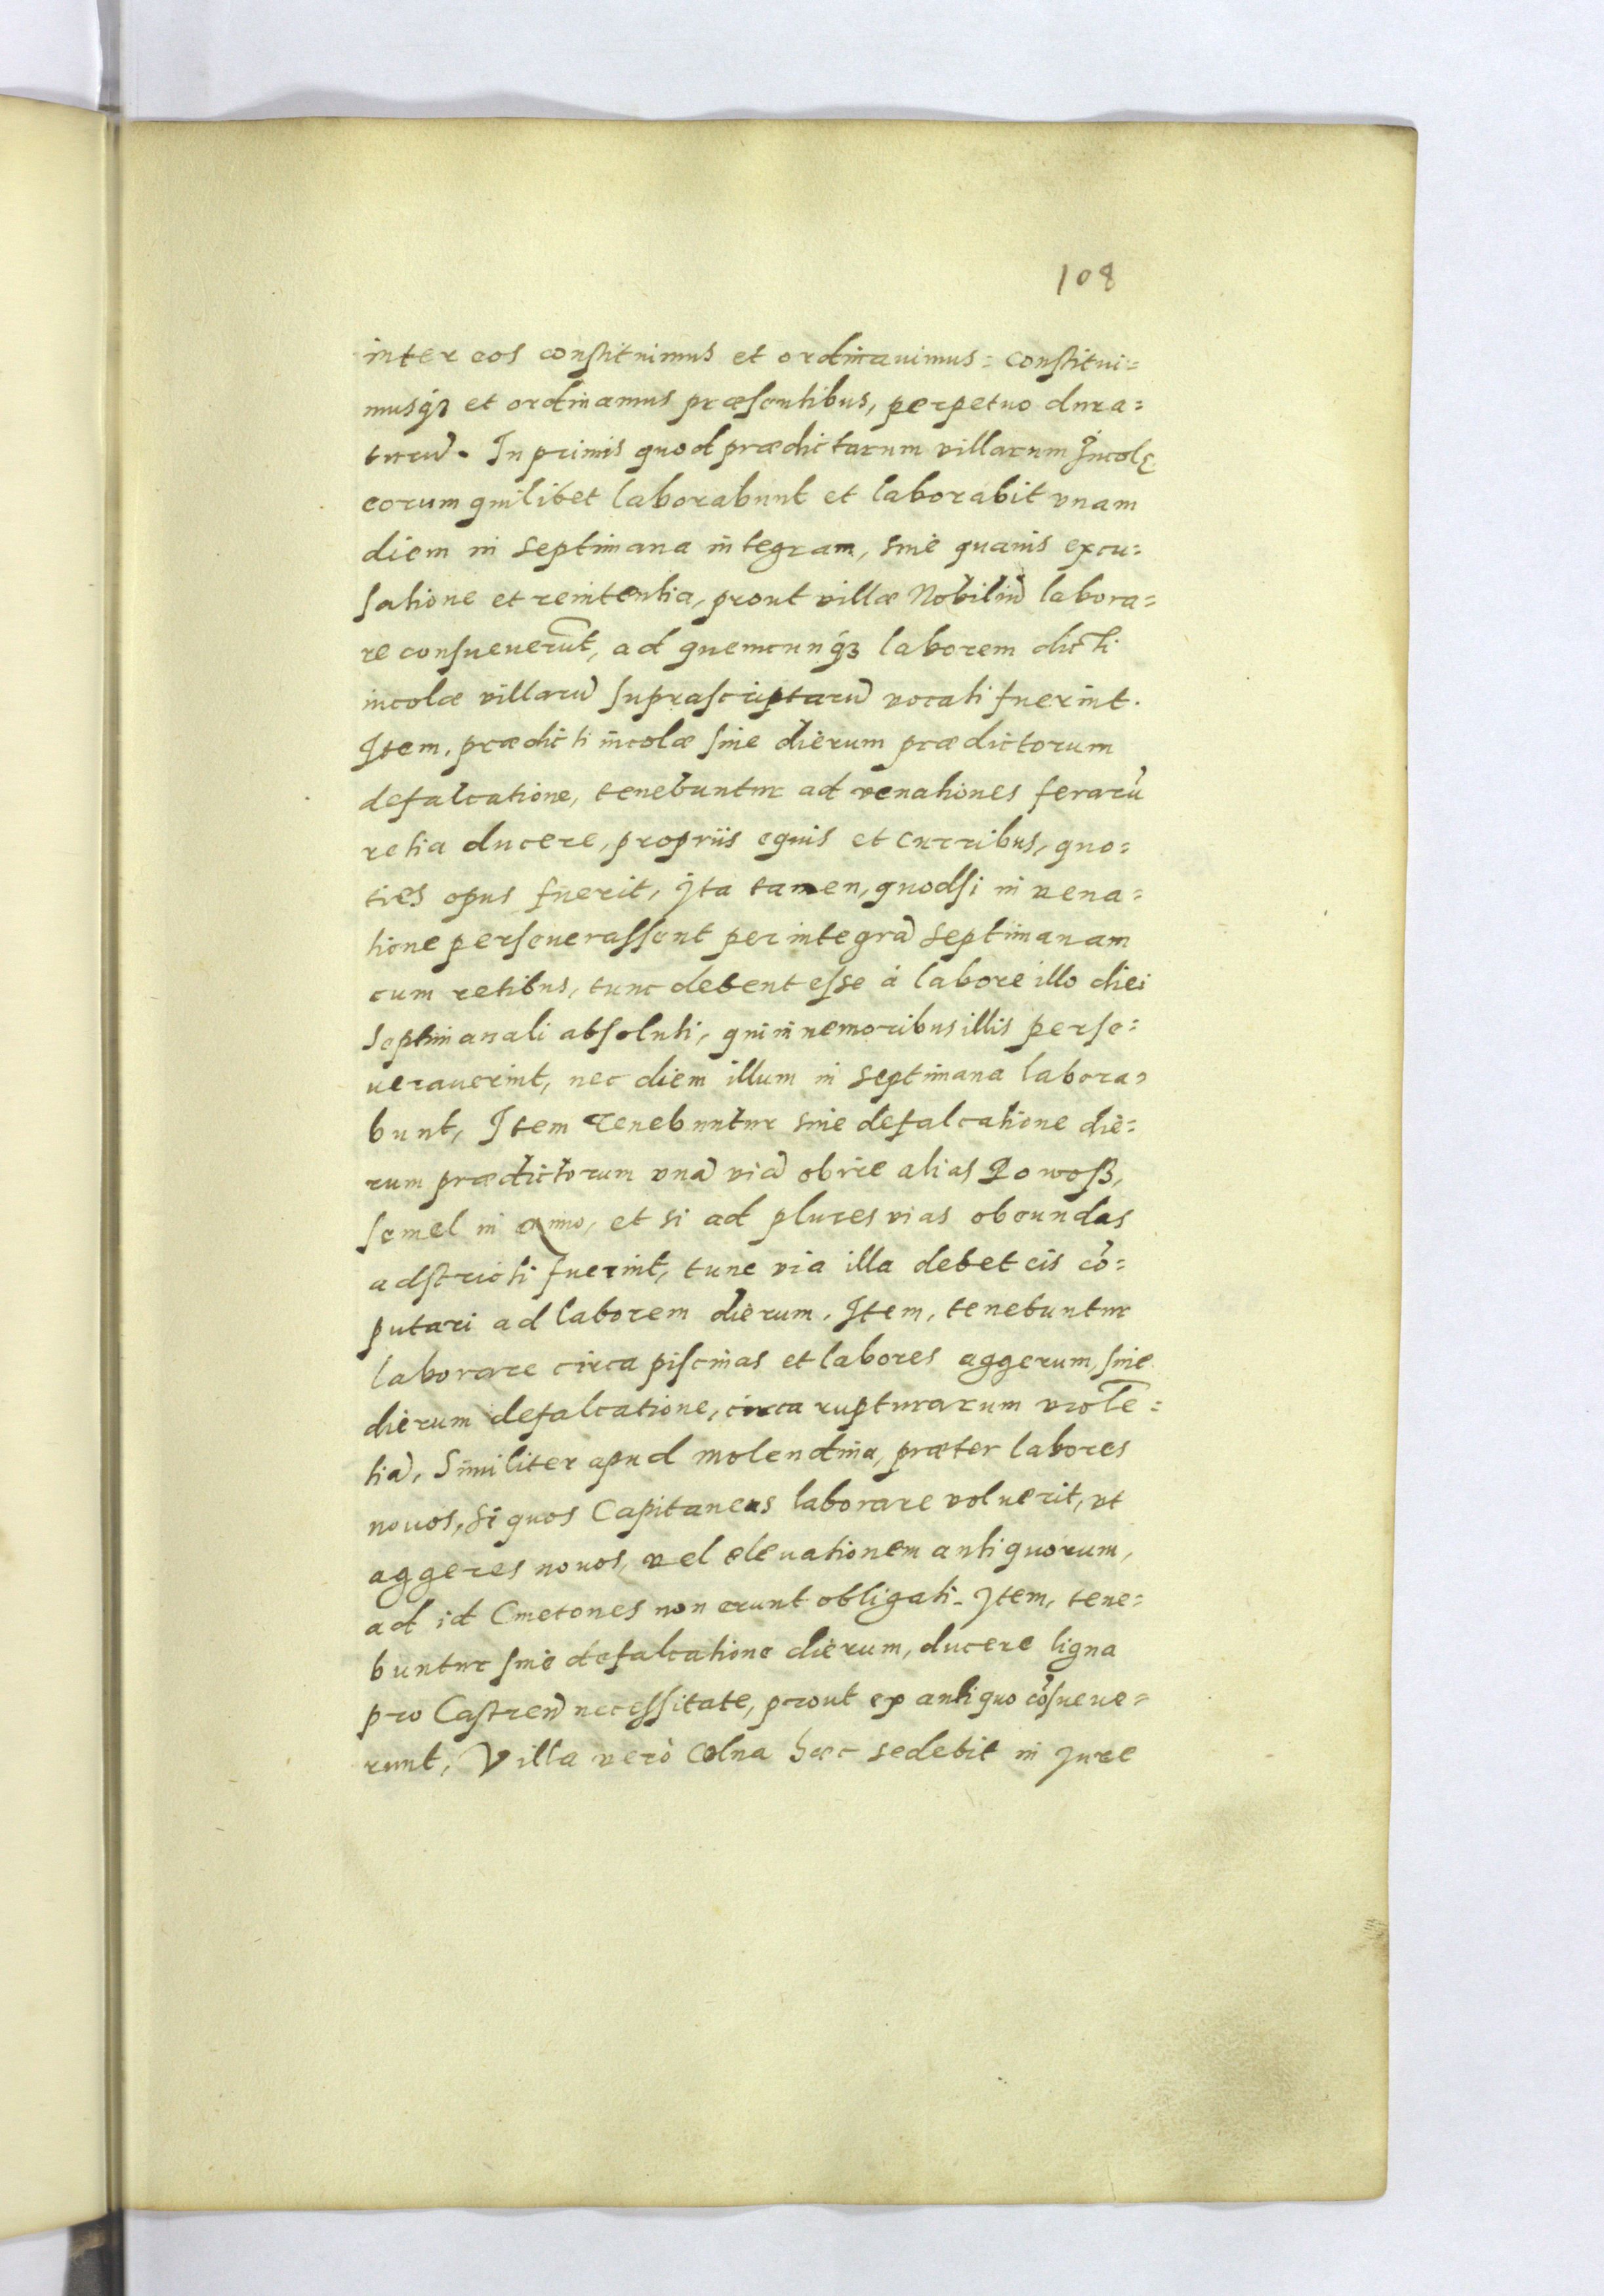 108
inter eos constituimus et ordinauimus = constitui=
musq3 et ordinamus præsentibus, perpetuo dura=
turũ. In primis quod prædictarum villarum Incolę
eorum quilibet laborabunt et laborabit vnam
diem in septimana integram, sine quauis excu=
satione et renitentia, prout villæ Nobiliũ labora=
re consueuerũt, ad quemcunq3 laborem dicti
incolæ villarũ suprascriptarũ vocati fuerint.
Item, prædicti incolæ sine dierum prædictorum
defalcatione, tenebuntur ad venationes ferarũ
retia ducere, propriis equis et curribus, quo=
ties opus fuerit, Ita tamen, quodsi in vena=
tione perseuerassent per integrã septimanam
cum retibus, tunc debent esse à labore illo diei
septimanali absoluti, qui in nemoribus illis perse=
uerauerint, nec diem illum in septimana labora=
bunt, Item Tenebuntur sine defalcatione die=
rum prædictorum vnã viã obire alias Powoß,
semel in anno, et si ad plures vias obeundas
adstricti fuerint, tunc via illa debet eis cõ=
putari ad laborem dierum. Item, tenebuntur
laborare circa piscinas et labores aggerum, sine
dierum defalcatione, circa rupturarum violẽ=
tiã, Similiter apud molendina, præter labores
nouos, si quos Capitaneus laborare voluerit, vt
aggeres nouos, vel eleuationem antiquorum,
ad id Cmetones non erunt obligati. Item, tene=
buntur sine defalcatione dierum, ducere ligna
pro Castreñ necessitate, prout ex antiquo cõsueue=
runt, Villa verò Colna hæc sedebit in Jure